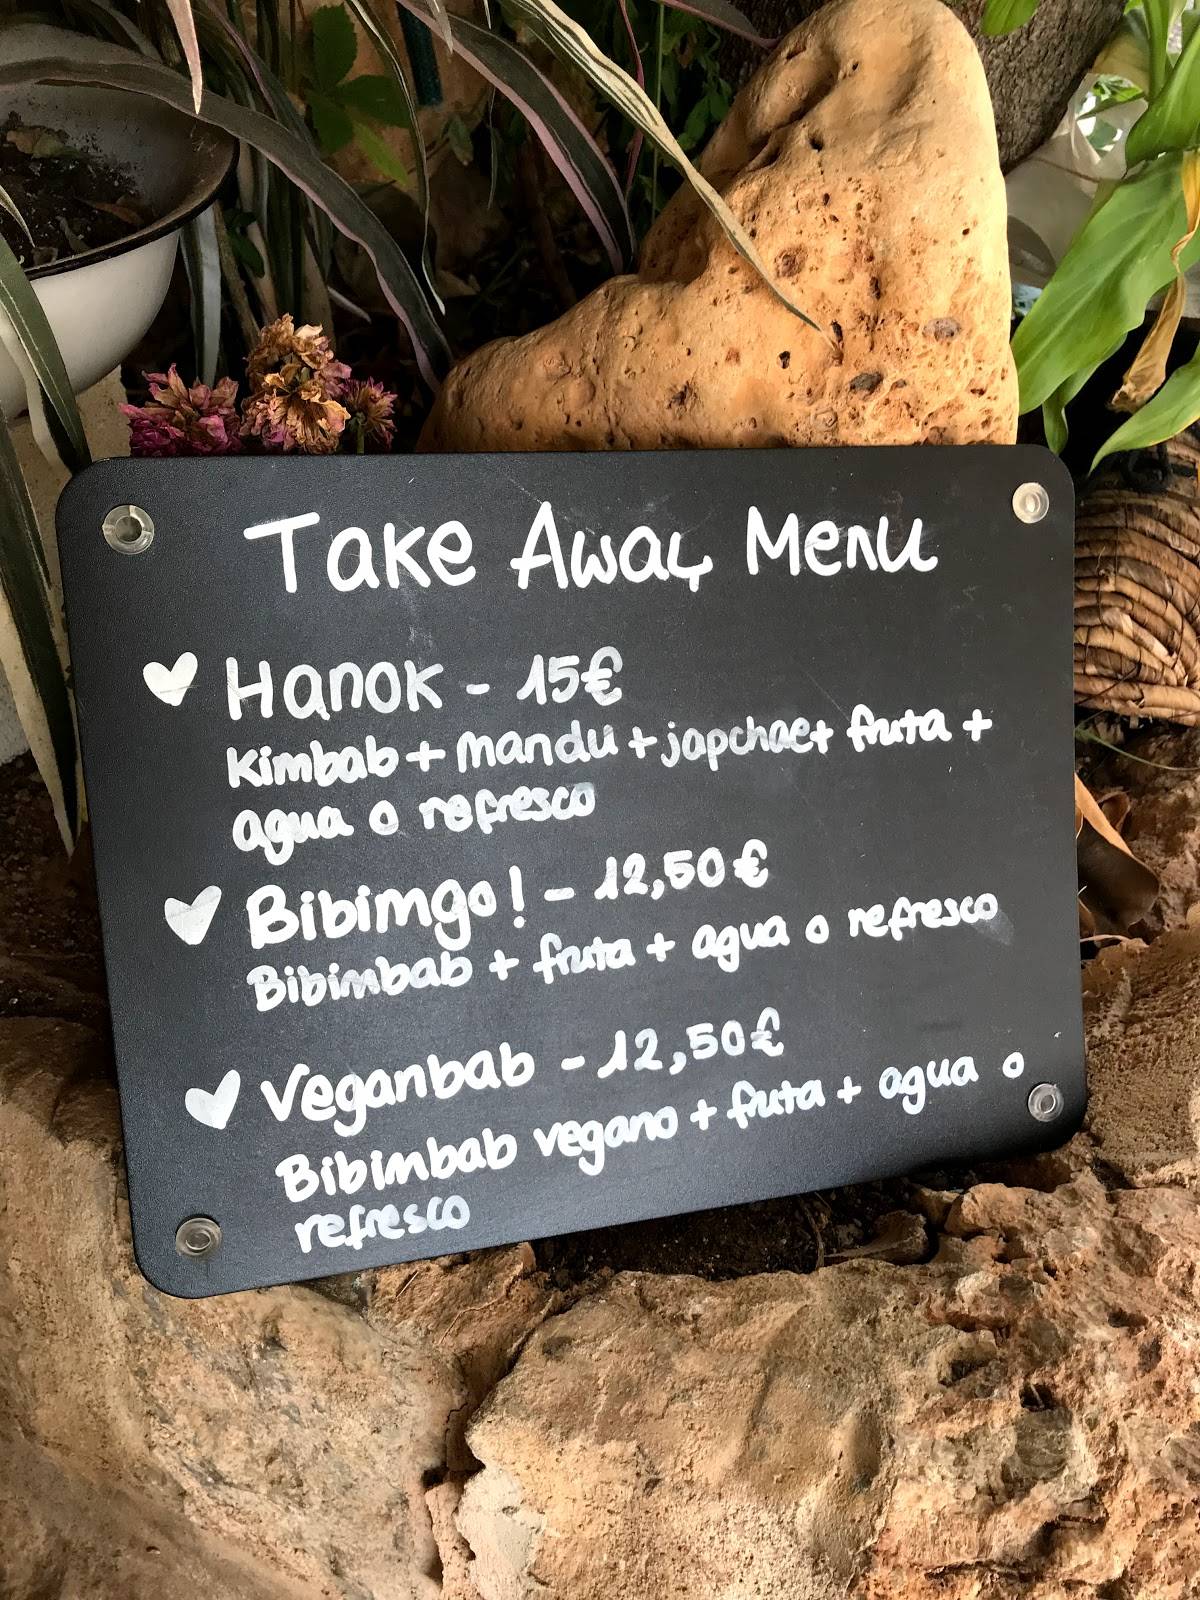 Take Away Menu
Hanok - 15€
Kimbab + mandu + japchae + fruta +
agua o refresco
Bibimgo! - 12,50€
Bibimbab + fruta + agua o refresco
Veganbab - 12,50€
Bibimbab vegano + fruta + agua o
refresco